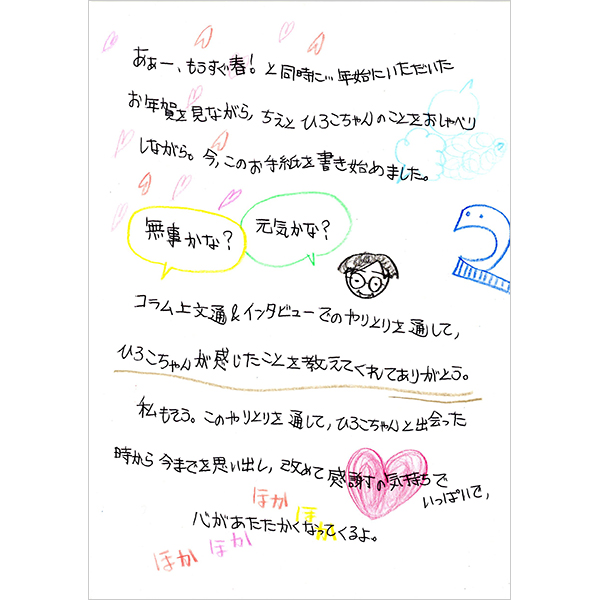 あぁー、もうすぐ春! と同時に…年始にいただいた
お年賀を見ながら、ちえと ひろこちゃんのことをおしゃべり
しながら。今、このお手紙を書き始めました。
無事かな?
元気かな?
コラム上文通&インタビューでのやりとりを通して、
ひろこちゃんが感じたことを教えてくれてありがとう。
私もそう。このやりとりを通して、ひろこちゃんと出会った
時から今までを思い出し、改めて感謝の気持ちで
いっぱいで、
ほか
ほか
心があたたかくなってくるよ。
ほか
ほか